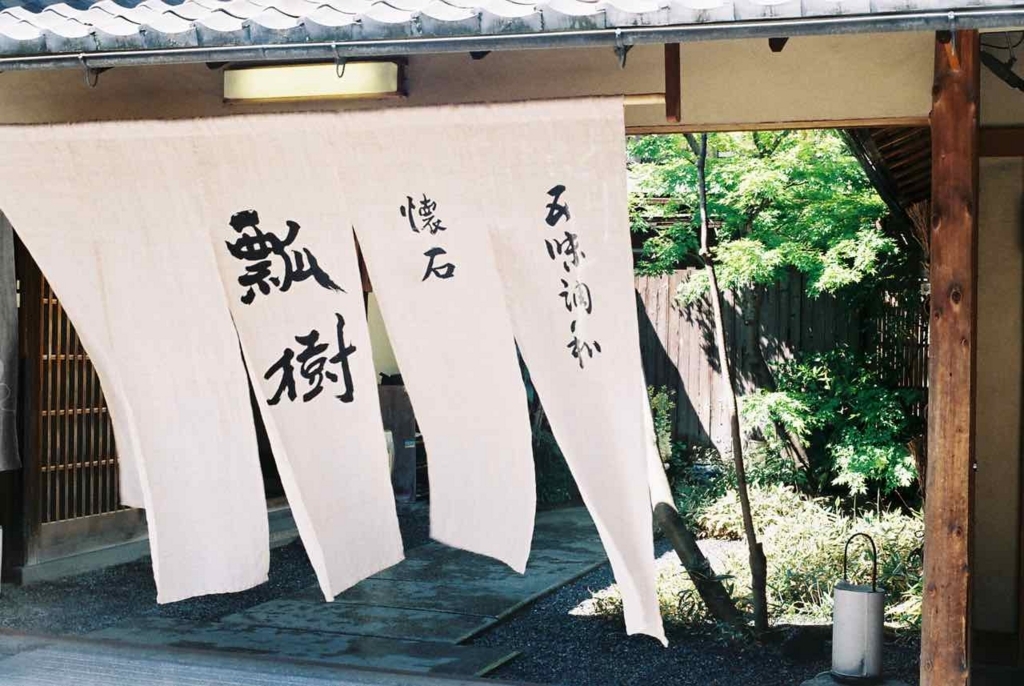 五味調和
懐石
瓢樹